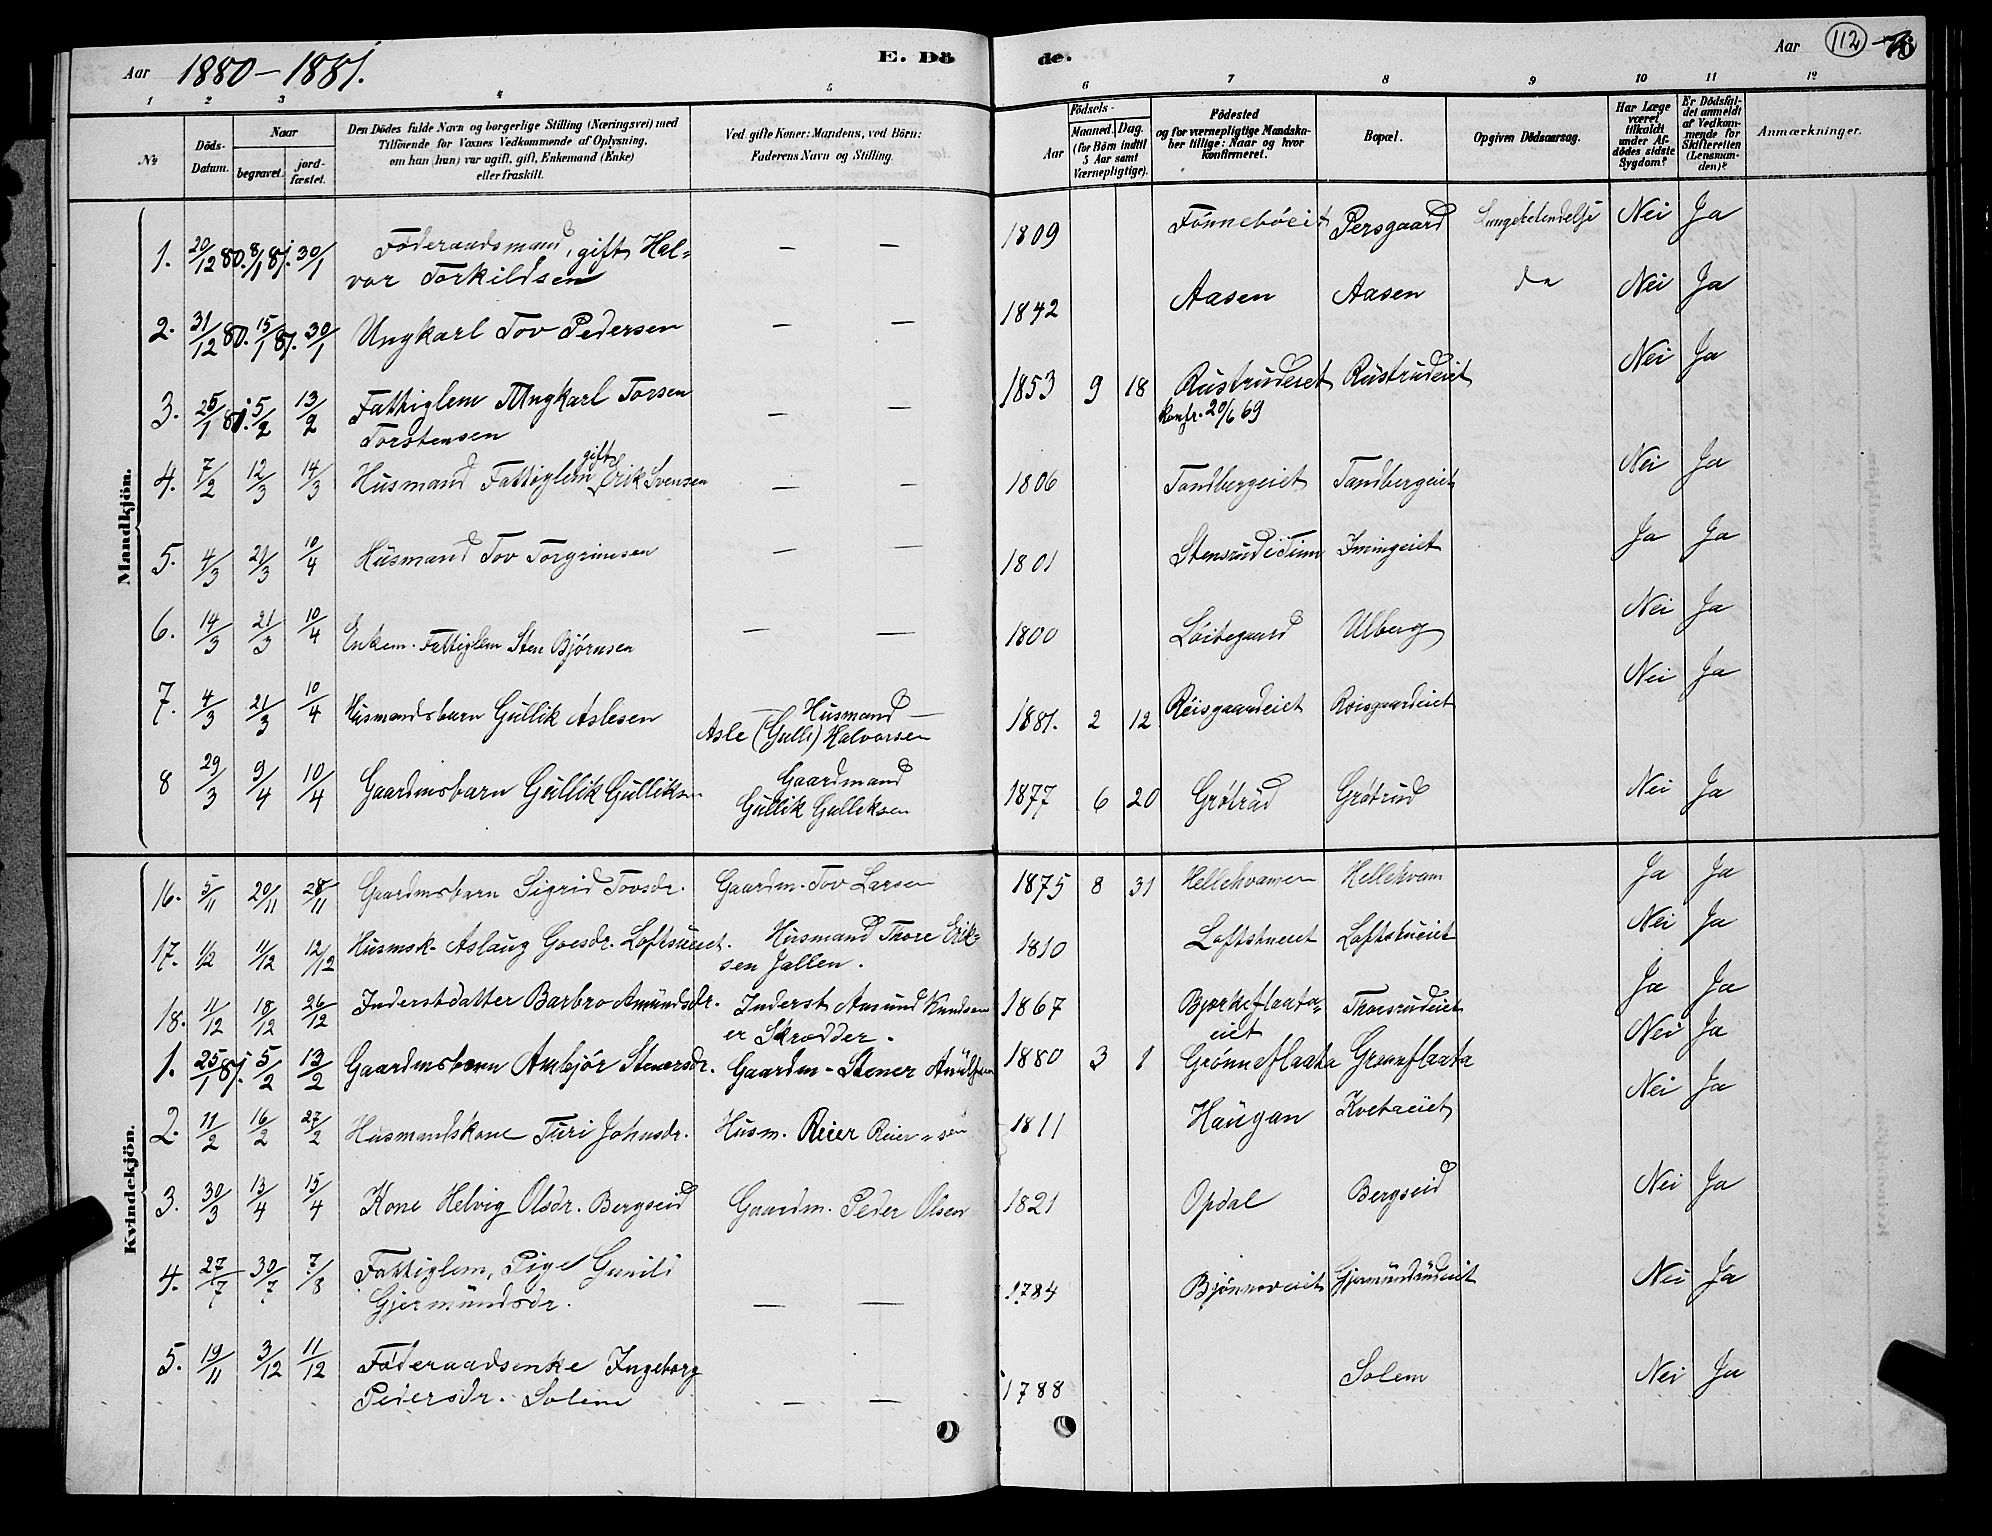 Aar 1880-1881. E. Dö de. Aar 112
1 2 3 4 5 6 7 8 9 10 11 12
No
Döds-Datum.
Naar
begravet.
jord-fæstet.
Den Dödes fulde Navn og borgerlige Stilling (Næringsvei) med
Tilföiende for Voxnes Vedkommende af Oplysning,
om han (hun) var ugift, gift, Enkemand (Enke)
eller fraskilt.
Ved gifte Koner: Mandens, ved Börn:
Faderens Navn og Stilling.
Födsels-
Aar
Maaned. Dag.
(for Börn indtil
5 Aar samt
Værnepligtige).
Födested
og for værnepligtige Mandska-
ber tillige: Naar og hvor
konfirmeret.
Bopæl.
Opgiven Dödsaarsag.
Har Læge
været
tilkaldt
under Af-
dödes sidste
Sygdom?
Er Dödsfal-
det anmeldt
af Vedkom-
mende for
Skifteretten
(Lensman-
den)?
Anmærkninger.
Mandkjön.
1. 20/12 80. 8/1 81. 30/1 Föderaadsmand, gift Hal- — — 1809 Fönneböeiet Persgaard Nei Ja
vor Torkildsen
2. 31/12 80. 15/1 81. 30/1 Ungkarl Tov Pedersen — — 1842 Aasen Aasen do Nei Ja
3. 25/1 81. 5/2 13/2 Fattiglem Ungkarl Torsen — — 1853 9 18 Rustrudeiet Rustrudeiet Nei Ja
Torstensen konfr. 20/6 69
4. 7/2 12/3 14/3 Husmand Fattiglem gift Erik Svensen — — 1806 Tandbergeiet Tandbergeiet Nei Ja
5. 4/3 21/3 10/4 Husmand Tov Torgrimsen — — 1801 Stensrud i Tinn Imingeiet Ja Ja
6. 14/3 21/3 10/4 Enkem. Fattiglem Sten Björnsen — — 1800 Löitegaard Ulberg Nei Ja
7. 4/3 21/3 10/4 Husmandsbarn Gullik Aslesen — Husmand — 1881. 2 12 Röisgaardeiet Roisgaardeiet Nei Ja
Asle (Gulli) Halvorsen
8 29/3 9/4 10/4 Gaardmsbarn Gullik Gulliksen Gaardmand 1877 6 20 Grötrud Grötrud Nei Ja
Gullik Gulliksen
Kvindekjön.
16. 5/11 20/11 28/11 Gaardmsbarn Sigrid Tovsdr. Gaardm. Tov Larsen 1875 8 31 Hellekvamen Hellekvam Ja Ja
17. 1/12 11/12 12/12 Husmsk. Aslaug Goesdr. Loftsueiet. Husmand Thore Erik- 1810 Loftstueiet Loftstueiet Nei Ja
sen Jallen.
18. 11/12 18/12 26/12 Inderstdatter Barbro Amundsdr. Inderst Amund Knudsen 1867 Bjørkeflaata- Thorsrudeiet Ja Ja
er Skrodder. eiet
1. 25/1 81. 5/2 13/2 Gaardmsbarn Ambjör Stenersdr. Gaardm - Stener 1880 3 1 Grönneflaata Grønnflaata Nei Ja
2. 11/2 16/2 27/2 Husmandskone Turi Johnsdr. Husm. Reier Reiersen 1811 Haugan Kvetaeiet Nei Ja
3. 30/3 13/4 15/4 Kone Helvig Olsdr. Bergseid Gaardm. Peder Olsen 1821 Opdal Bergseid Nei Ja
4. 27/7 30/7 7/8 Fattiglem, Pige Gunild — — 1784 Bjönnoveiet Gjermundrudeiet Nei Ja
Gjermundsdr.
5. 19/11 3/12 11/12 Föderaadsenke Ingeborg — — 1788 Solem Nei Ja
Pedersdr. Solem